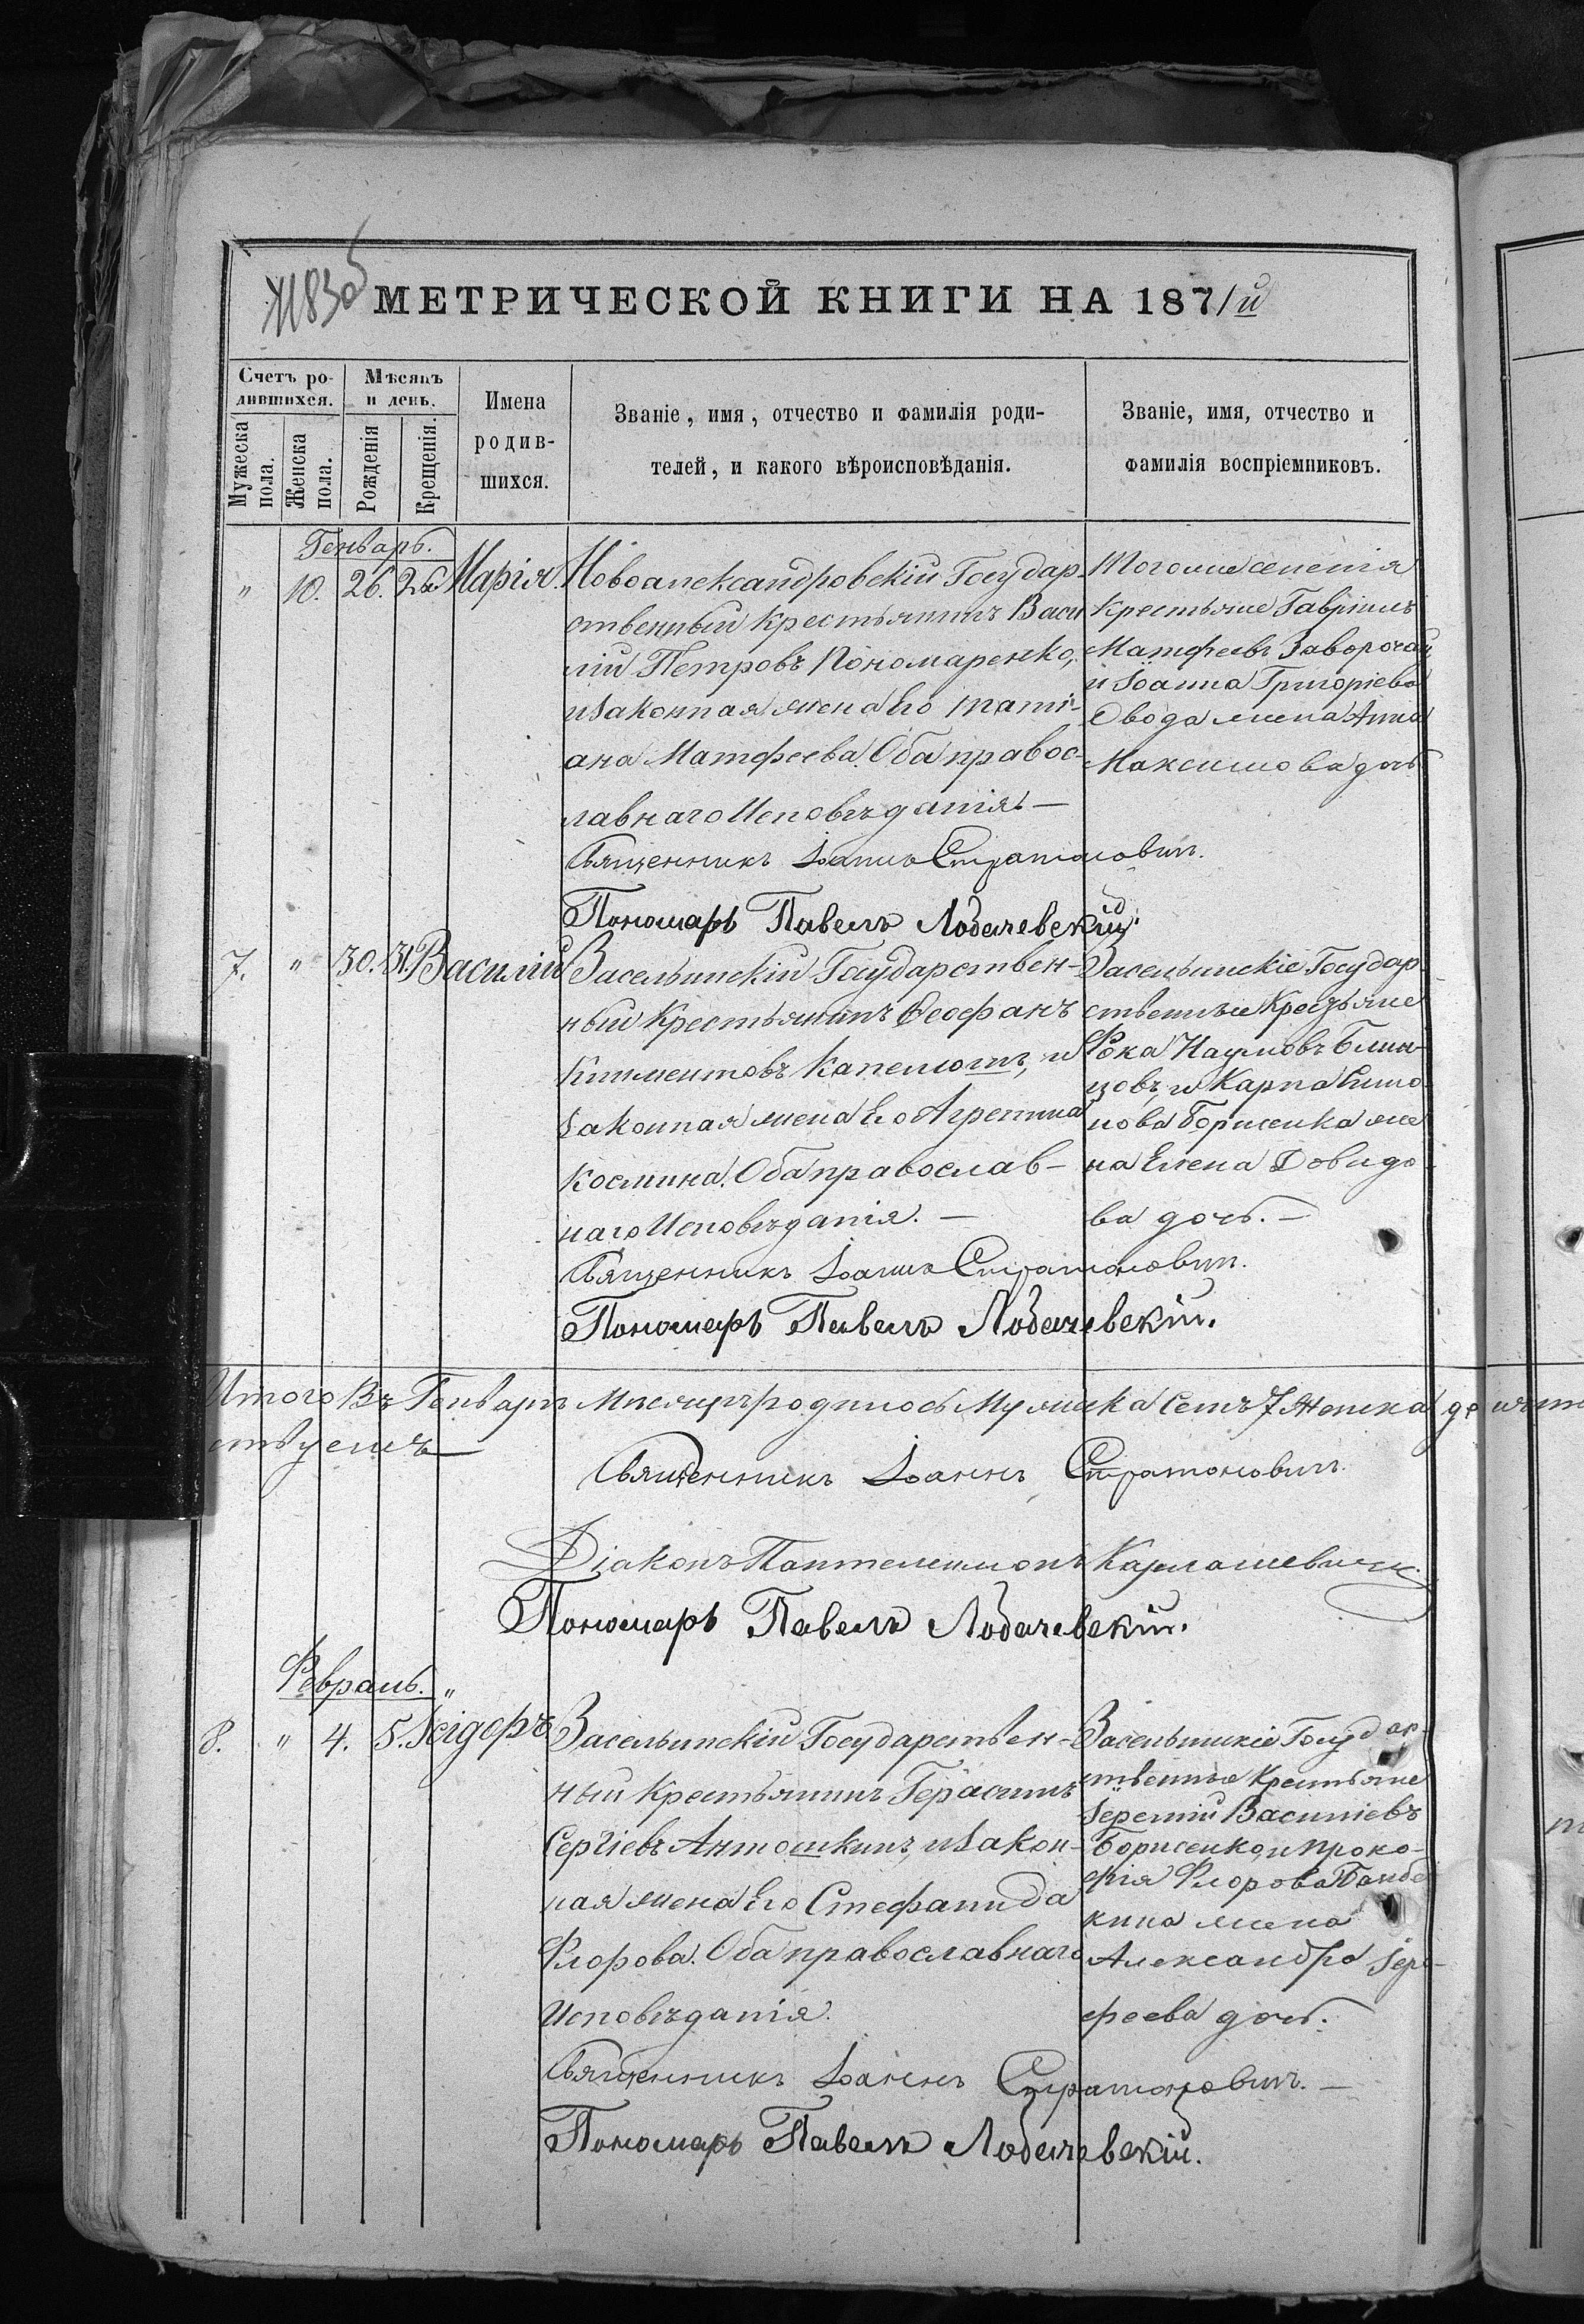 МЕТРИЧЕСКОЙ КНИГИ НА 1871й
Счетъ ро-
дившихся.
Мужеска
пола.
Женска
пола.
Мѣсяцъ
и день.
Рожденія
Крещенія.
Имена
родив-
шихся.
Званіе, имя, отчество и фамилія роди-
телей, и какого вѣроисповѣданія.
Званіе, имя, отчество и
фамилія воспріемниковъ.
Генварь.
" 10. 26. 26 Марія.
Новоалександровскій Государ-
ственный крестьянинъ Васи
лій Петровъ Пономаренко,
и законная жена Его Тати-
ана Матфеева. Оба правос-
лавнаго Исповѣданія —
Священникъ Іоаннъ Стратоновичъ.
Пономарь Павелъ Лобачевскій.
Тогоже селенія
крестьяне Гавріилъ
Матфеевъ Заворотай
и Іоанна Григоріева
Овода жена Анна
Максимова дочь
7. " 30. 31. Василій
Засельинскій Государствен-
ный Крестьянинъ Ѳеофанъ
Климентовъ Капелюшъ, и
законная жена Его Агрепина
Космина. Оба православ-
наго Исповѣданія. —
Священникъ Іоаннъ Стратоновичъ.
Пономарь Павелъ Лобачевскій.
Засельинскіе Государ-
ственные Крестьяне
Фока Наумовъ Блин-
цовъ, и Карпа Симо
нова Борисенка же
на Елена Довидо
ва дочь. —
Итого Въ Генварѣ Мѣсяцѣ родилось Мужеска Семъ 7 Женска
Священникъ Іоаннъ Стратоновичъ.
Діаконъ Пантелеимонъ Карпашевичъ.
Пономарь Павелъ Лобачевскій.
Февраль. "
8. " 4. 5. Ісідоръ
Засельинскій Государствен-
ный Крестьянинъ Герасимъ
Сергіевъ Антошкинъ, и закон-
ная жена Его Стефанида
Флорова. Оба православнаго
Исповѣданія.
Священникъ Іоаннъ Стратоновичъ. —
Пономарь Павелъ Лобачевскій.
Засельинскіе Государ-
ственные Крестьяне
Іеремій Василіевъ
Борисенко, и Проко-
фія Флорова
кина жена
Александра
феева дочь.